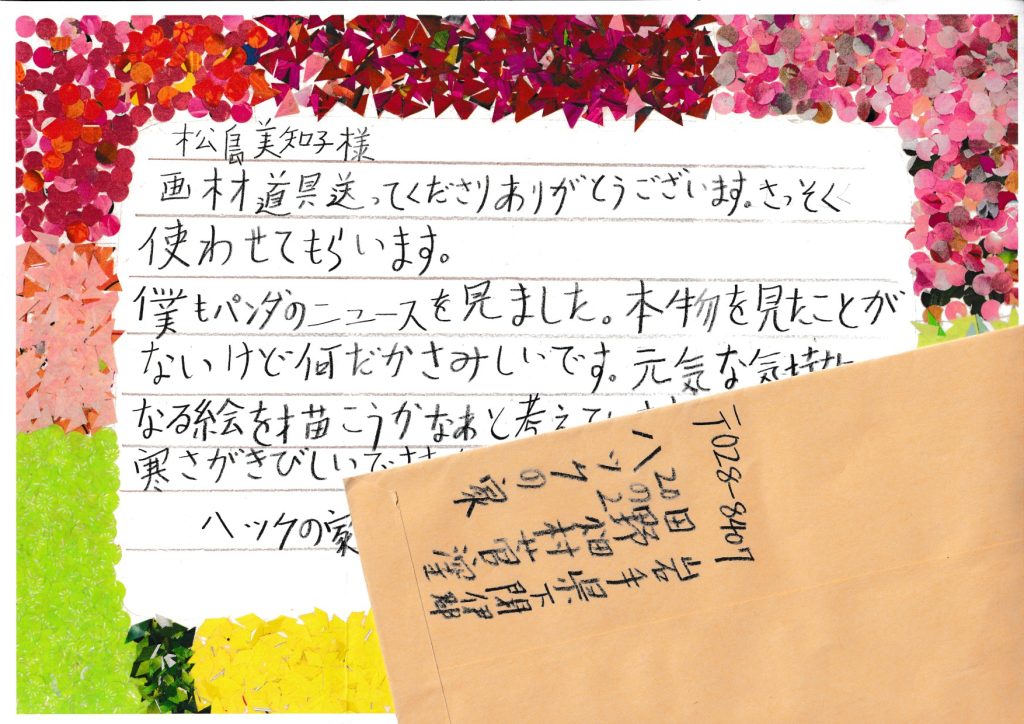 松島美知子様
画材道具送ってくださりありがとうございます。さっそく
使わせてもらいます。
僕もパンダのニュースを見ました。本物を見たことが
ないけど何だかさみしいです。元気な気持ち
なる絵を描こうかなぁと考えてい
寒さがきびしいで
ハックの家
〒028-8407
岩手県下閉伊郡
田野畑村菅窪
20の2
ハックの家